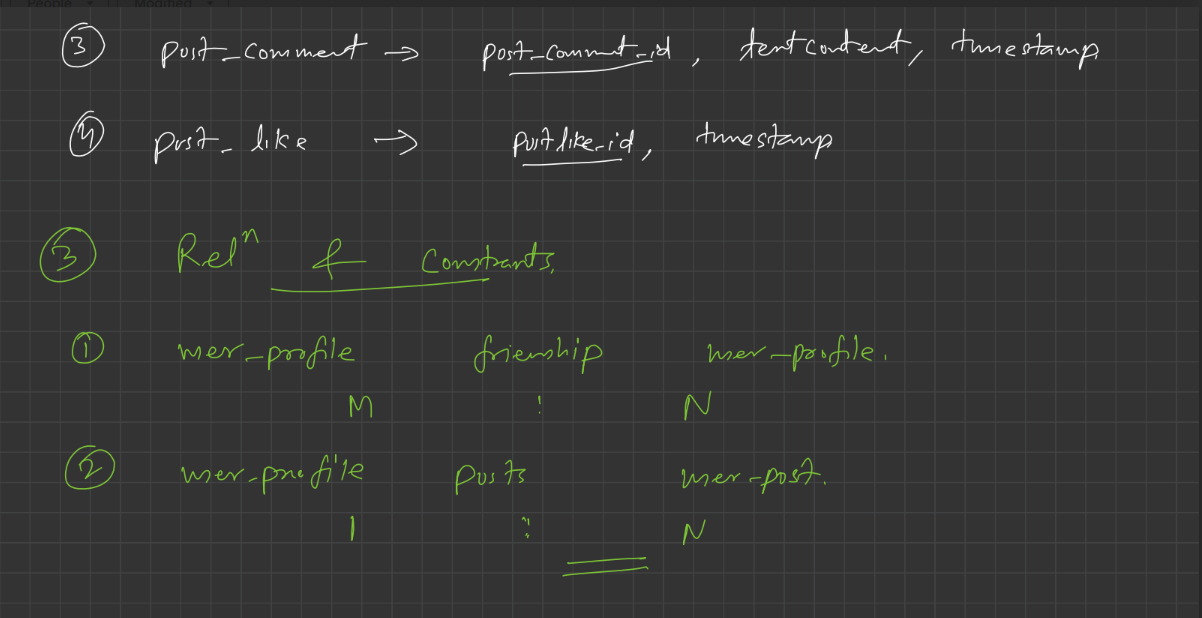 People Modified
③ post_comment → post_comment_id, textcontent, timestamp
④ post_like → postlike_id, timestamp
③ Relⁿ & Constrants.
① user_profile frienship user_profile.
M : N
② user_profile posts user_post.
1 : N